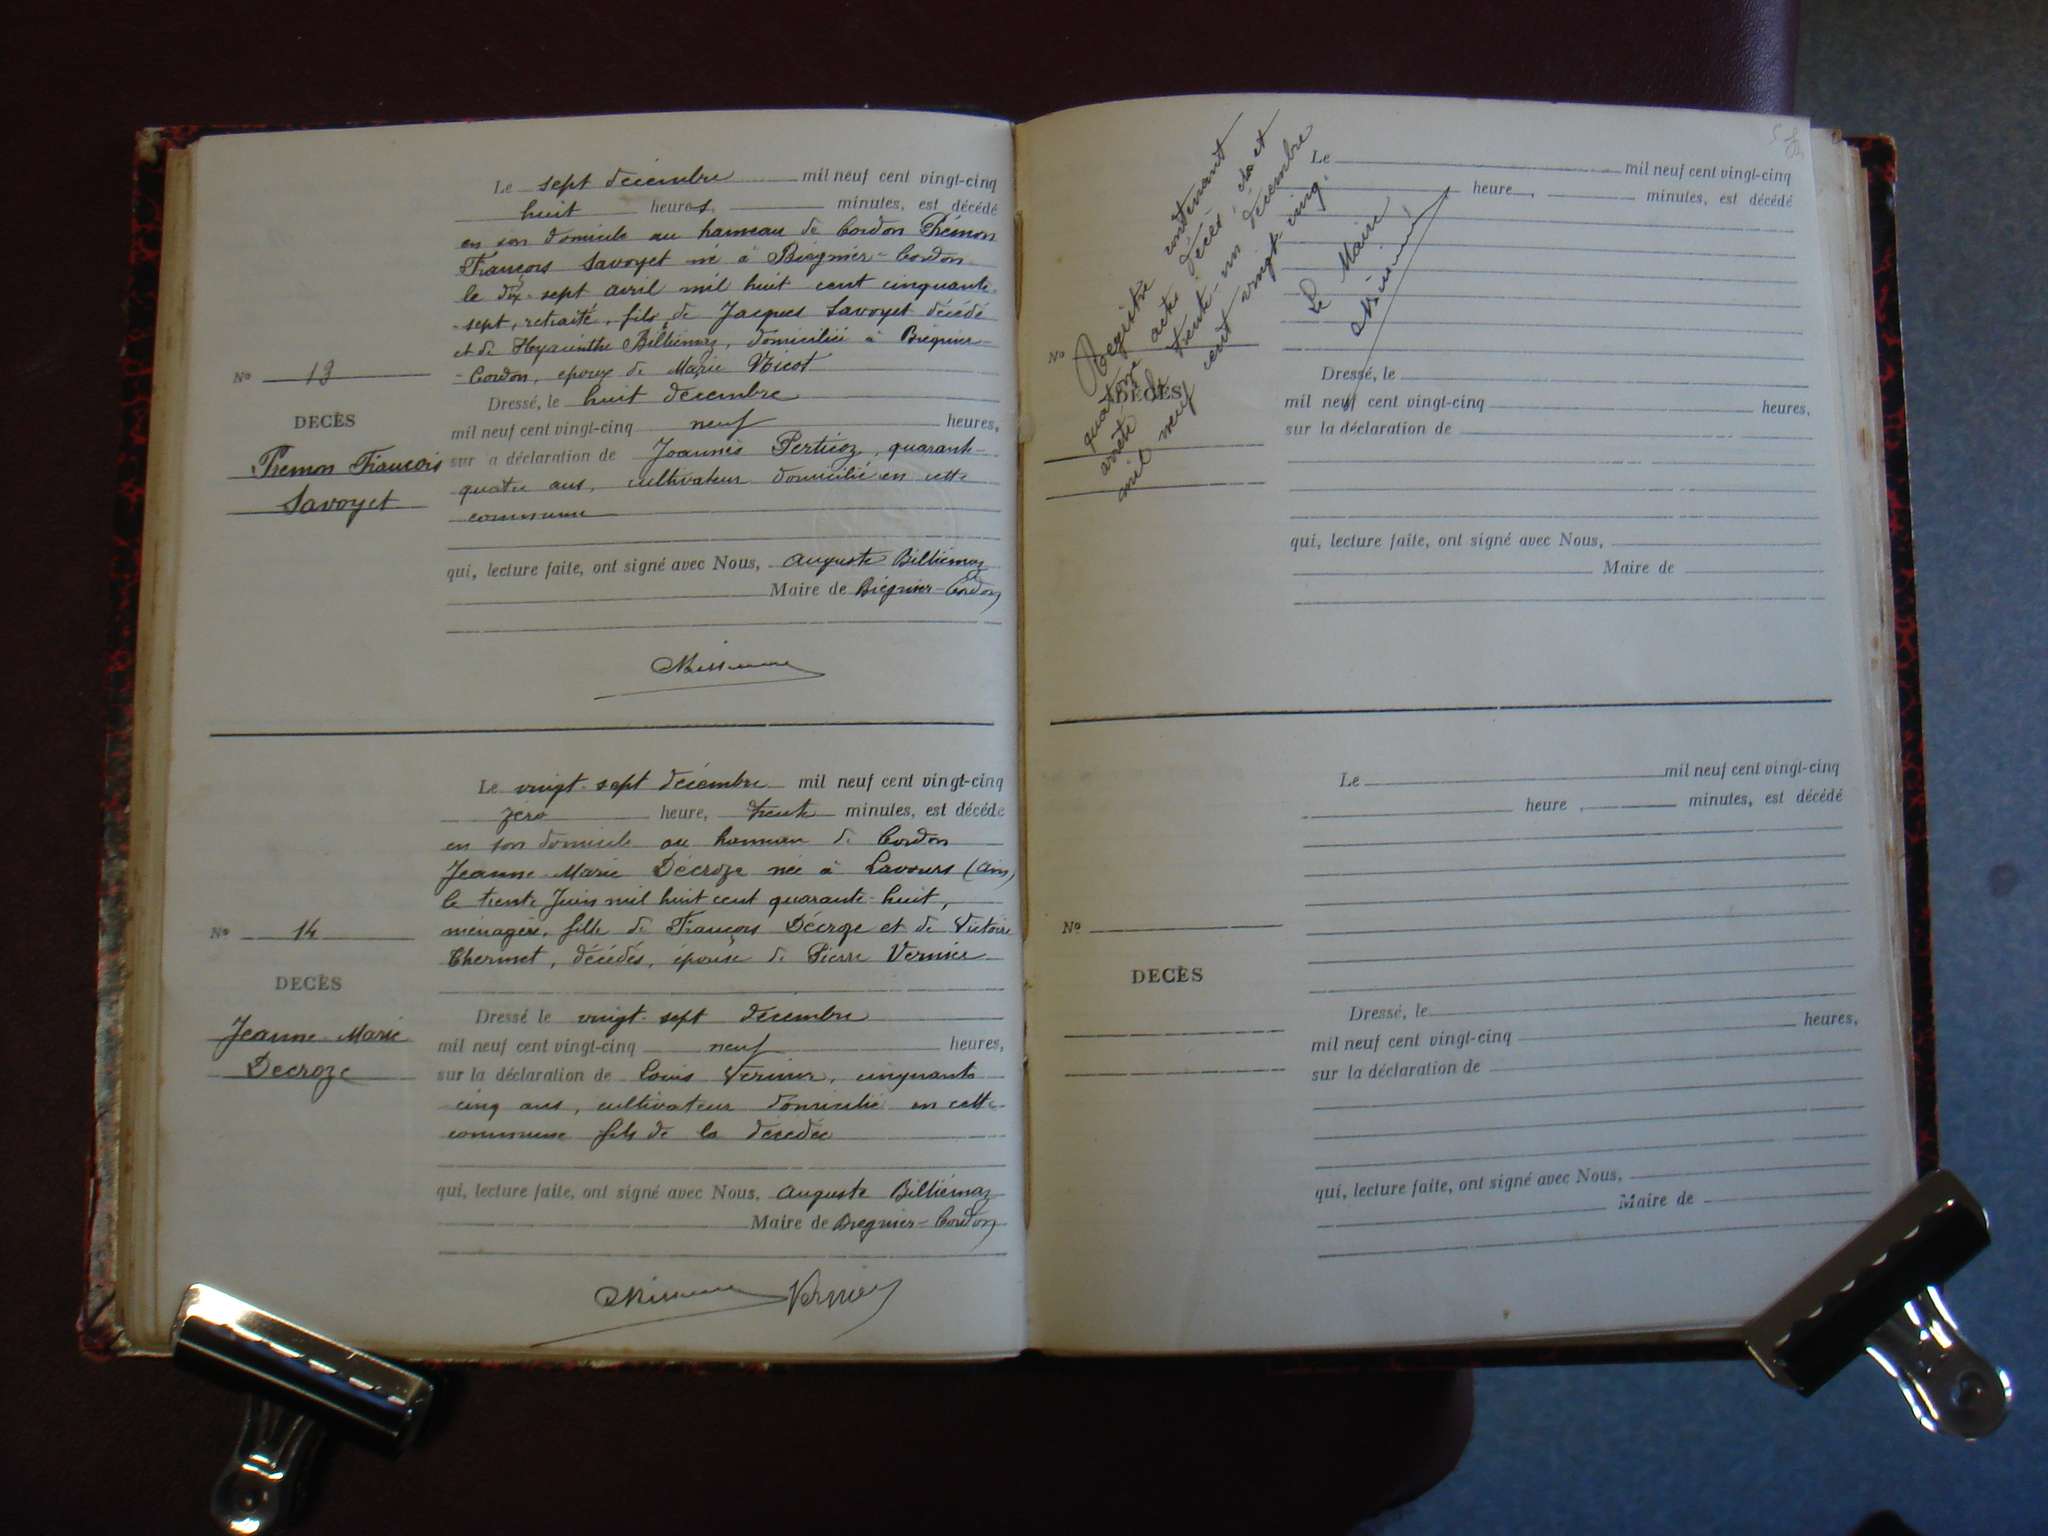 Le sept décembre mil neuf cent vingt-cinq
huit heures, minutes, est décédé
en son domicile au hameau de Cordon Prémon
François Savoyet né à Brégnier-Cordon
le dix-sept avril mil huit cent cinquante-
sept, retraité, fils de Jacques Savoyet décédé
et de Hyacinthe Billiémaz, domiciliée à Brégnier-
-Cordon, époux de Marie
No 13
Dressé, le huit décembre
DECÈS
mil neuf cent vingt-cinq neuf heures,
Prémon François
Savoyet
sur a déclaration de Joannès Perticoz, quarante-
quatre ans, cultivateur domicilié en cette
commune
qui, lecture faite, ont signé avec Nous, Auguste Billiémaz
Maire de Brégnier-Cordon
Le vingt-sept décembre mil neuf cent vingt-cinq
zéro heure, trente minutes, est décédé
en son domicile au hameau de Cordon
Jeanne-Marie Décroze née à Lavours (Ain)
le trente Juin mil huit cent quarante-huit,
ménagère, fille de François Décroze et de Victoire
Thermet, décédés, épouse de Pierre Vernier
No 14
DECÈS
Jeanne-Marie
Decroze
Dressé le vingt-sept décembre
mil neuf cent vingt-cinq neuf heures,
sur la déclaration de Louis Vernier, cinquante
cinq ans, cultivateur domicilié en cette
commune fils de la décédée
qui, lecture faite, ont signé avec Nous, Auguste Billiémaz
Maire de Brégnier-Cordon
Vernier
Registre contenant
quatorze actes décès clos et
arrêté le trente-un décembre
mil neuf cent vingt cinq.
Le Maire
Le mil neuf cent vingt-cinq
heure, minutes, est décédé
No
DECÈS
Dressé, le
mil neuf cent vingt-cinq heures,
sur la déclaration de
qui, lecture faite, ont signé avec Nous,
Maire de
Le mil neuf cent vingt-cinq
heure, minutes, est décédé
No
DECÈS
Dressé, le
mil neuf cent vingt-cinq heures,
sur la déclaration de
qui, lecture faite, ont signé avec Nous,
Maire de